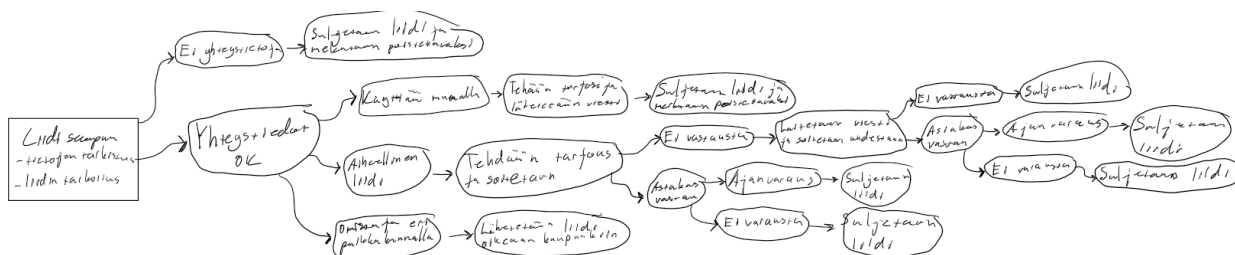 Liidi saapuu
- tietojen tarkistus
- liidin tarkoitus
Ei yhteystietoja
Suljetaan liidi ja
merkataan poistettavaksi
Yhteystiedot
OK
Käyttään muualla
Tehdään tarjous ja
lähetetään viesti
Suljetaan liidi ja
merkataan poistettavaksi
Aiheellinen
liidi
Tehdään tarjous
ja soitetaan
Ei vastausta
Laitetaan viesti
ja soitetaan uudestaan
Ei vastausta
Suljetaan liidi
Asiakas
vastaa
Ajanvaraus
Suljetaan
liidi
Ei varausta
Suljetaan liidi
Asiakas
vastaa
Ajanvaraus
Suljetaan
liidi
Ei varausta
Suljetaan
liidi
Omistaja eri
paikkakunnalla
Lähetetään liidi
oikeaan kaupunkiin